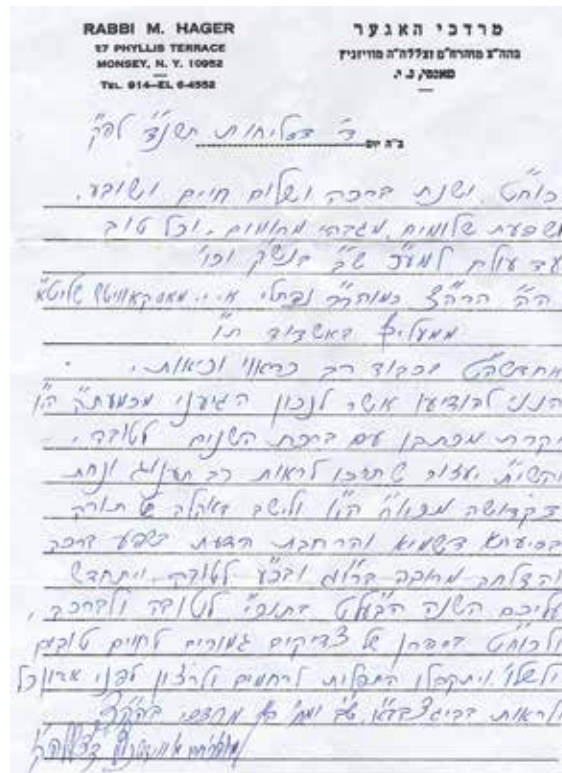 RABBI M. HAGER
27 PHYLLIS TERRACE
MONSEY, N. Y. 10952
TEL. 914—EL 6-4552
מרדכי האגער
בהה"צ מוהרח"מ זצללה"ה מוויזניץ
מאנסי, נ. י.
ב"ה יום ד' דסליחות תשנ"ד לפ"ק
כוח"ט ושנת ברכה ושלום חיים ושובע,
ושפעת שלומים מגבהי מרומים, וכל טוב
עד עולם למע"כ
ה"ה הרה"צ כמוהר"ר נפתלי שליט"א
באשדוד ת"ו
אחדשה"ט בכבוד רב כראוי וכיאות.
הנני להודיעו אשר לנכון הגיעני ה"ו
יקרת מכתבו עם ברכת השנים לטובה,
והשי"ת יעזור שתזכו לראות רב תענוג ונחת
דקדושה ולישב באהלה של תורה
בסיעתא דשמיא והרחבת הדעת בשפע ברכה
והצלחה מרובה ברו"ג ובכ"ע לטובה, ויתחדש
עליכם השנה הבעל"ט לטובה ולברכה,
ולכוח"ט בספרן של צדיקים גמורים לחיים טובים
ולשלו' ויתקבלו התפלות לרחמים ולרצון לפני אדון כל
ולראות